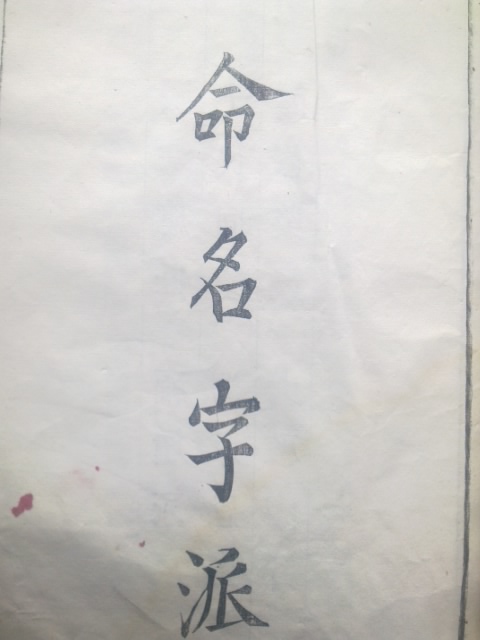 命名字派